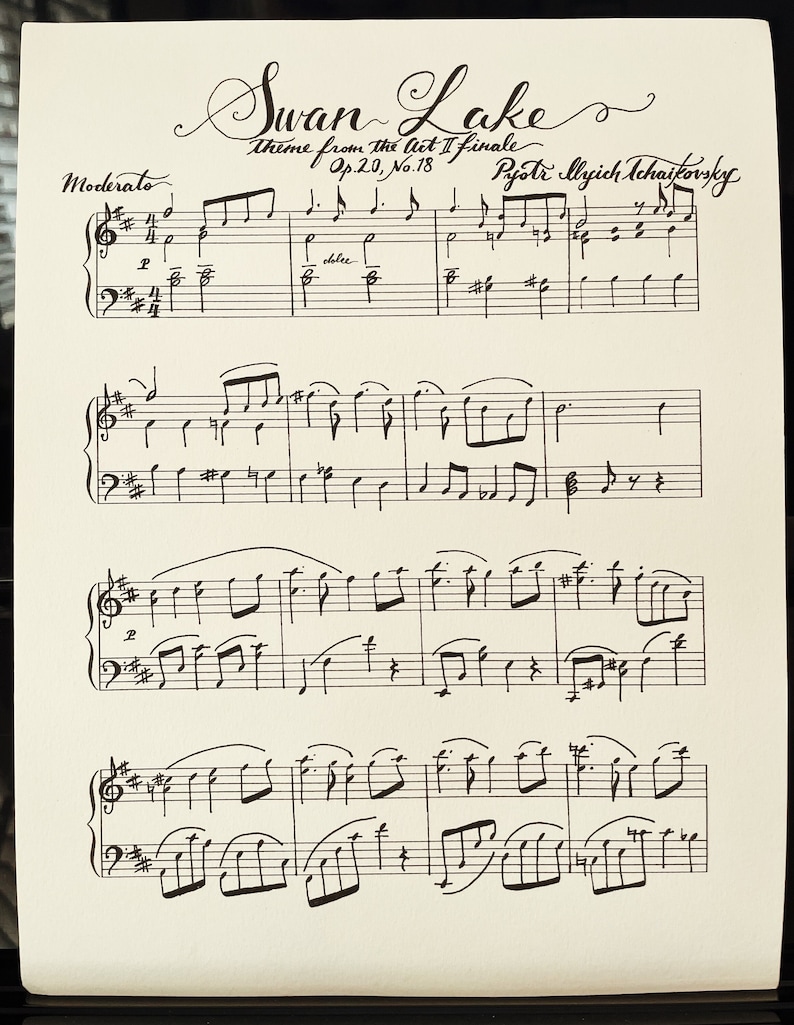 Swan Lake
theme from the Act II finale
Op.20, No.18
Pyotr Ilyich Tchaikovsky
Moderato
4
4
P
dolce
4
4
P